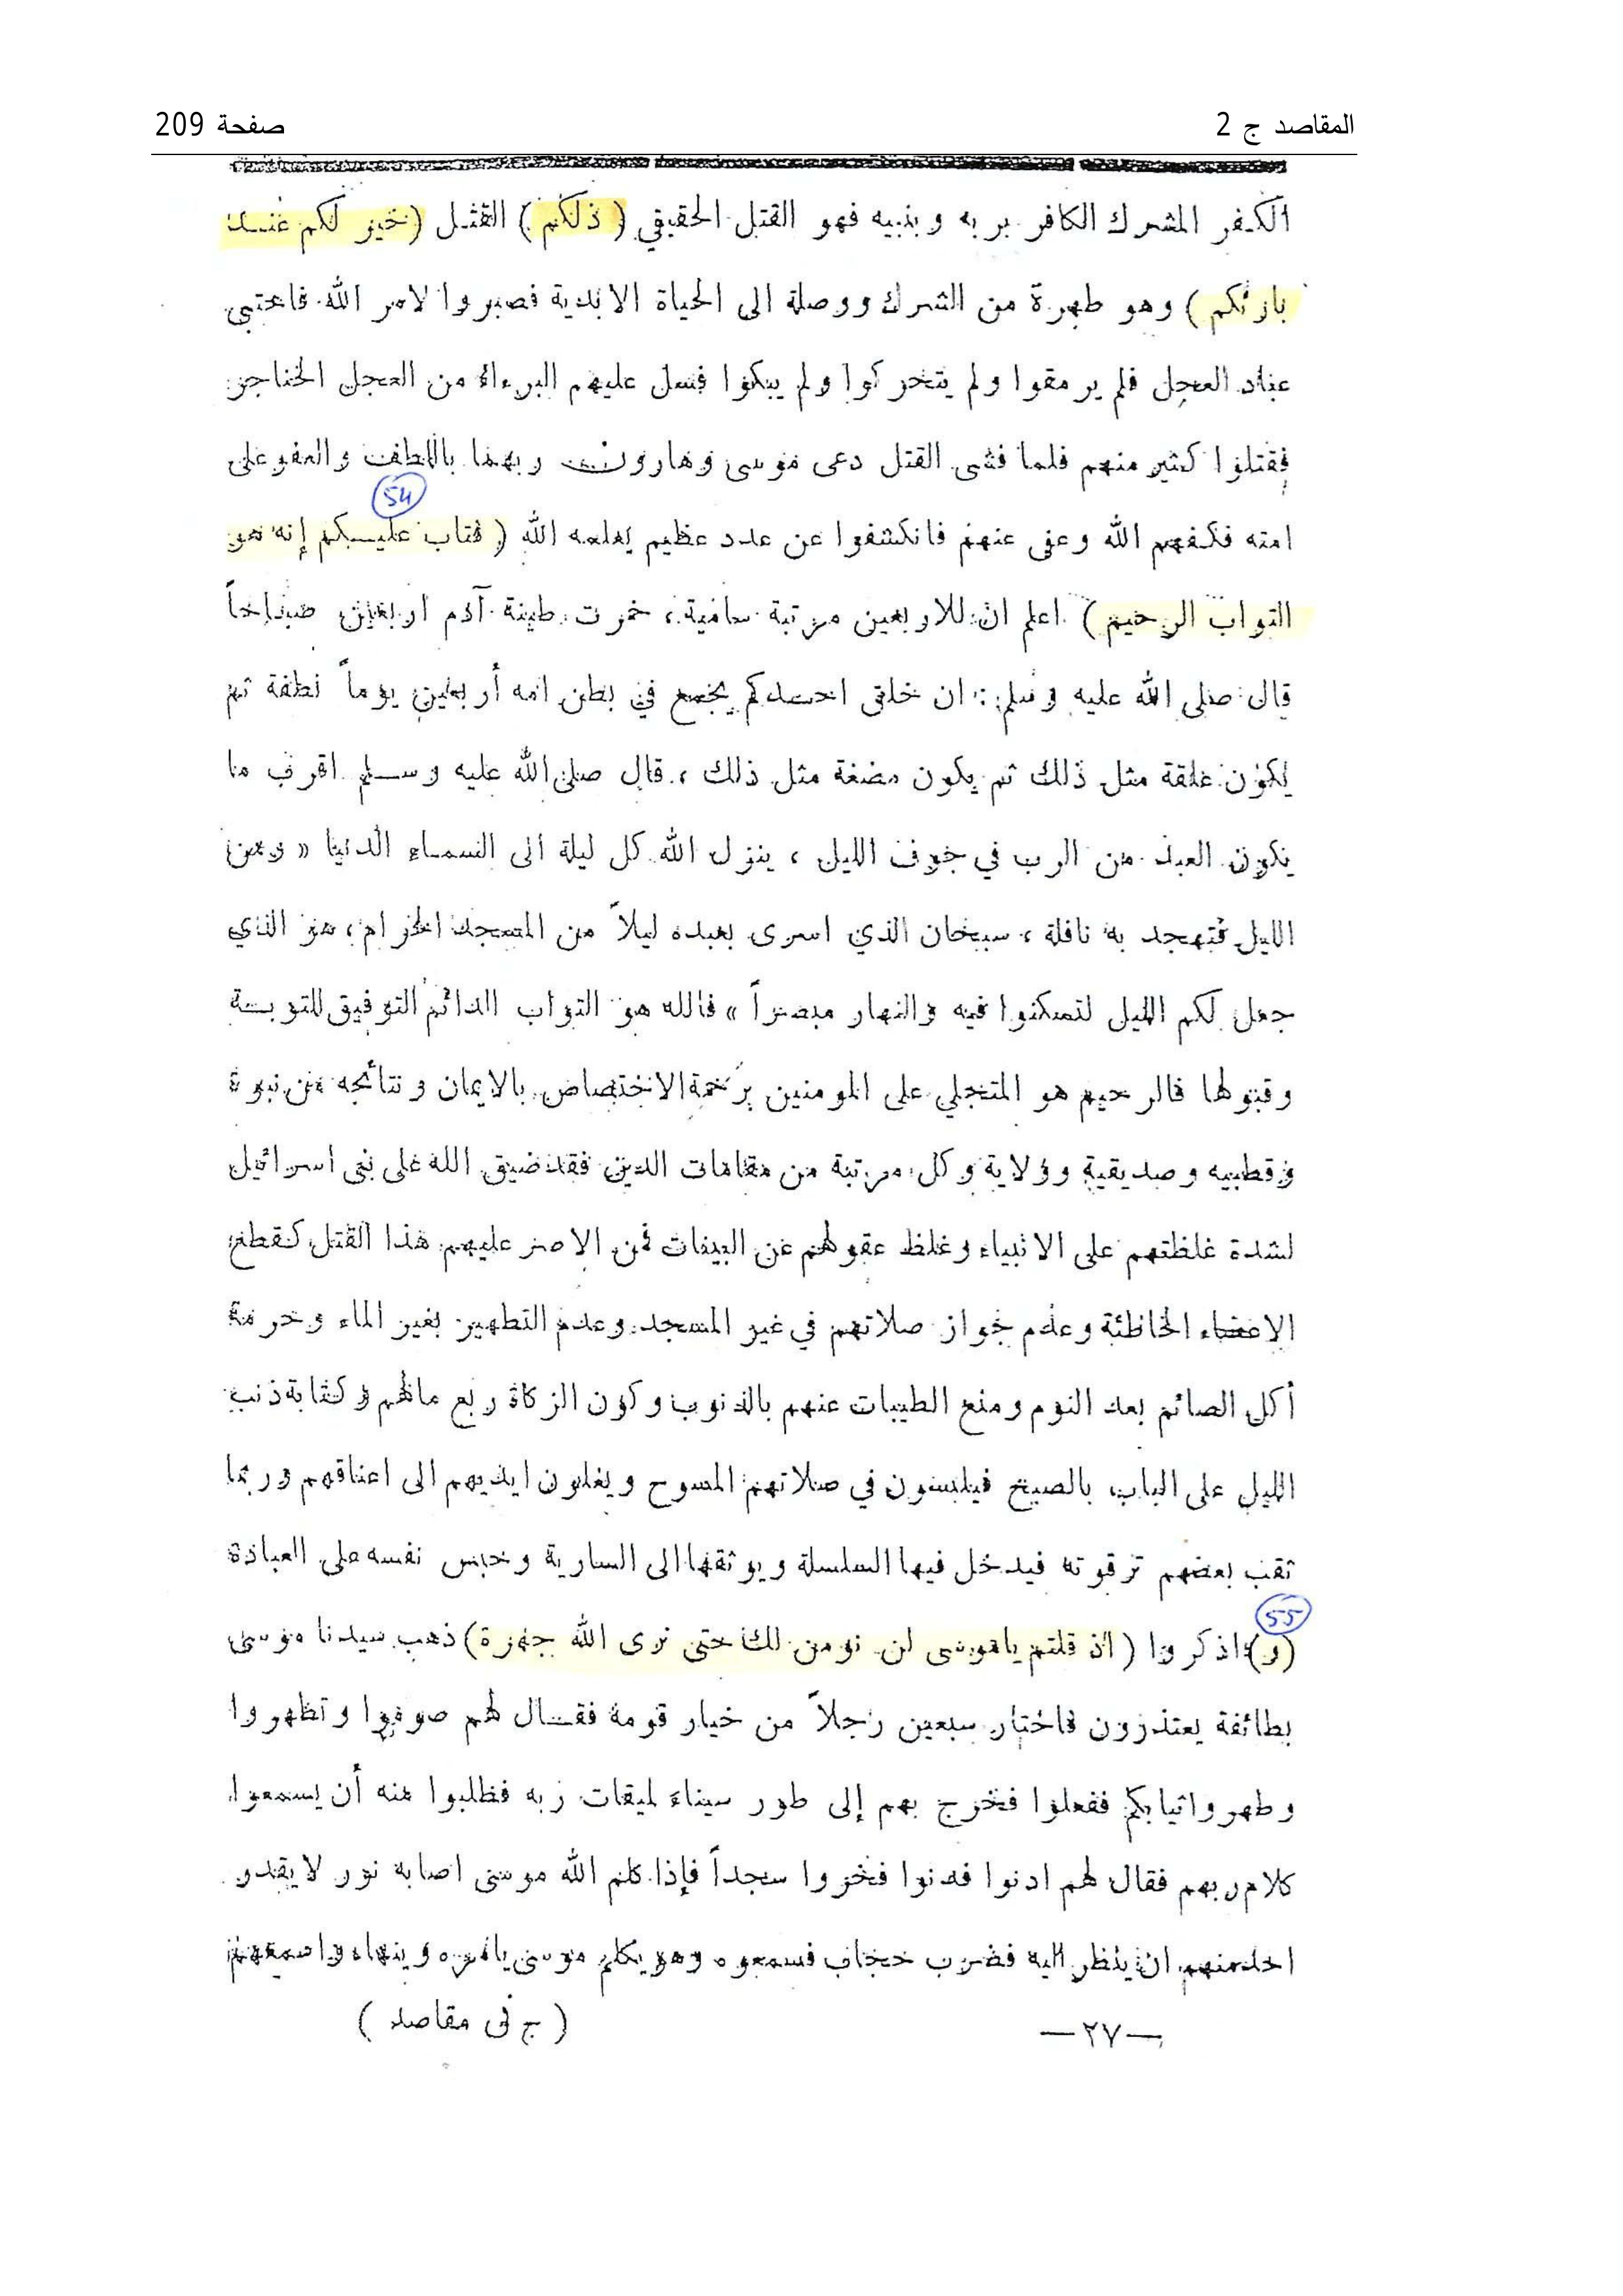 المقاصد ج 2
صفحة 209
الكفر المشرك الكافر بربه وبنبيه فهو القتل الحقيقي ( ذلكم ) القتل ( خير لكم عند
بارئكم ) وهو طهرة من الشرك ووصلة الى الحياة الابدية فصبروا لامر الله فاحتبى
عباد العجل فلم يرمقوا ولم يتحركوا ولم يبكوا فسل عليهم البرءاء من العجل الخناجر
فقتلوا كثير منهم فلما فشى القتل دعى موسى وهارون ربهما باللطف والعفو على
54
امته فكفهم الله وعفى عنهم فانكشفوا عن عدد عظيم يعلمه الله ( فتاب عليكم إنه هو
التواب الرحيم ) اعلم ان للاربعين مرتبة سامية ، خمرت طينة آدم اربعين صباحاً
قال صلى الله عليه وسلم : ان خلق احدكم يجمع في بطن امه أربعين يوماً نطفة ثم
يكون علقة مثل ذلك ثم يكون مضغة مثل ذلك ، قال صلى الله عليه وسلم اقرب ما
يكون العبد من الرب في جوف الليل ، ينزل الله كل ليلة الى السماء الدنيا « ومن
الليل فتهجد به نافلة ، سبحان الذي اسرى بعبده ليلاً من المسجد الحرام ، هو الذي
جعل لكم الليل لتسكنوا فيه والنهار مبصراً » فالله هو التواب الدائم التوفيق للتوبة
وقبولها فالرحيم هو المتجلي على المومنين برحمة الاختصاص بالايمان ونتائجه من نبوة
وقطبيه وصديقية وولاية وكل مرتبة من مقامات الدين فقد ضيق الله على بنى اسرائيل
لشدة غلظتهم على الانبياء وغلظ عقولهم عن البينات فمن الاصر عليهم هذا القتل كقطع
الاعضاء الخاطئة وعدم جواز صلاتهم في غير المسجد وعدم التطهير بغير الماء وحرمة
أكل الصائم بعد النوم ومنع الطيبات عنهم بالذنوب وكون الزكاة ربع مالهم وكتابة ذنب
الليل على الباب بالصبح فيلبسون في صلاتهم المسوح ويغلون ايديهم الى اعناقهم وربما
ثقب بعضهم ترقوته فيدخل فيها السلسلة ويوثقها الى السارية وحبس نفسه على العبادة
55
( و ) اذكروا ( اذ قلتم ياموسى لن نومن لك حتى نرى الله جهرة ) ذهب سيدنا موسى
بطائفة يعتذرون فاختار سبعين رجلاً من خيار قومه فقال لهم صوموا وتطهروا
وطهروا ثيابكم ففعلوا فخرج بهم إلى طور سيناء لميقات ربه فطلبوا منه أن يسمعوا
كلام ربهم فقال لهم ادنوا فدنوا فخروا سجداً فإذا كلم الله موسى اصابه نور لا يقدر
احد منهم ان ينظر اليه فضرب حجاب فسمعوه وهو يكلم موسى يامره وينهاه واسمعهم
— ٢٧ —
( ج نى مقاصد )